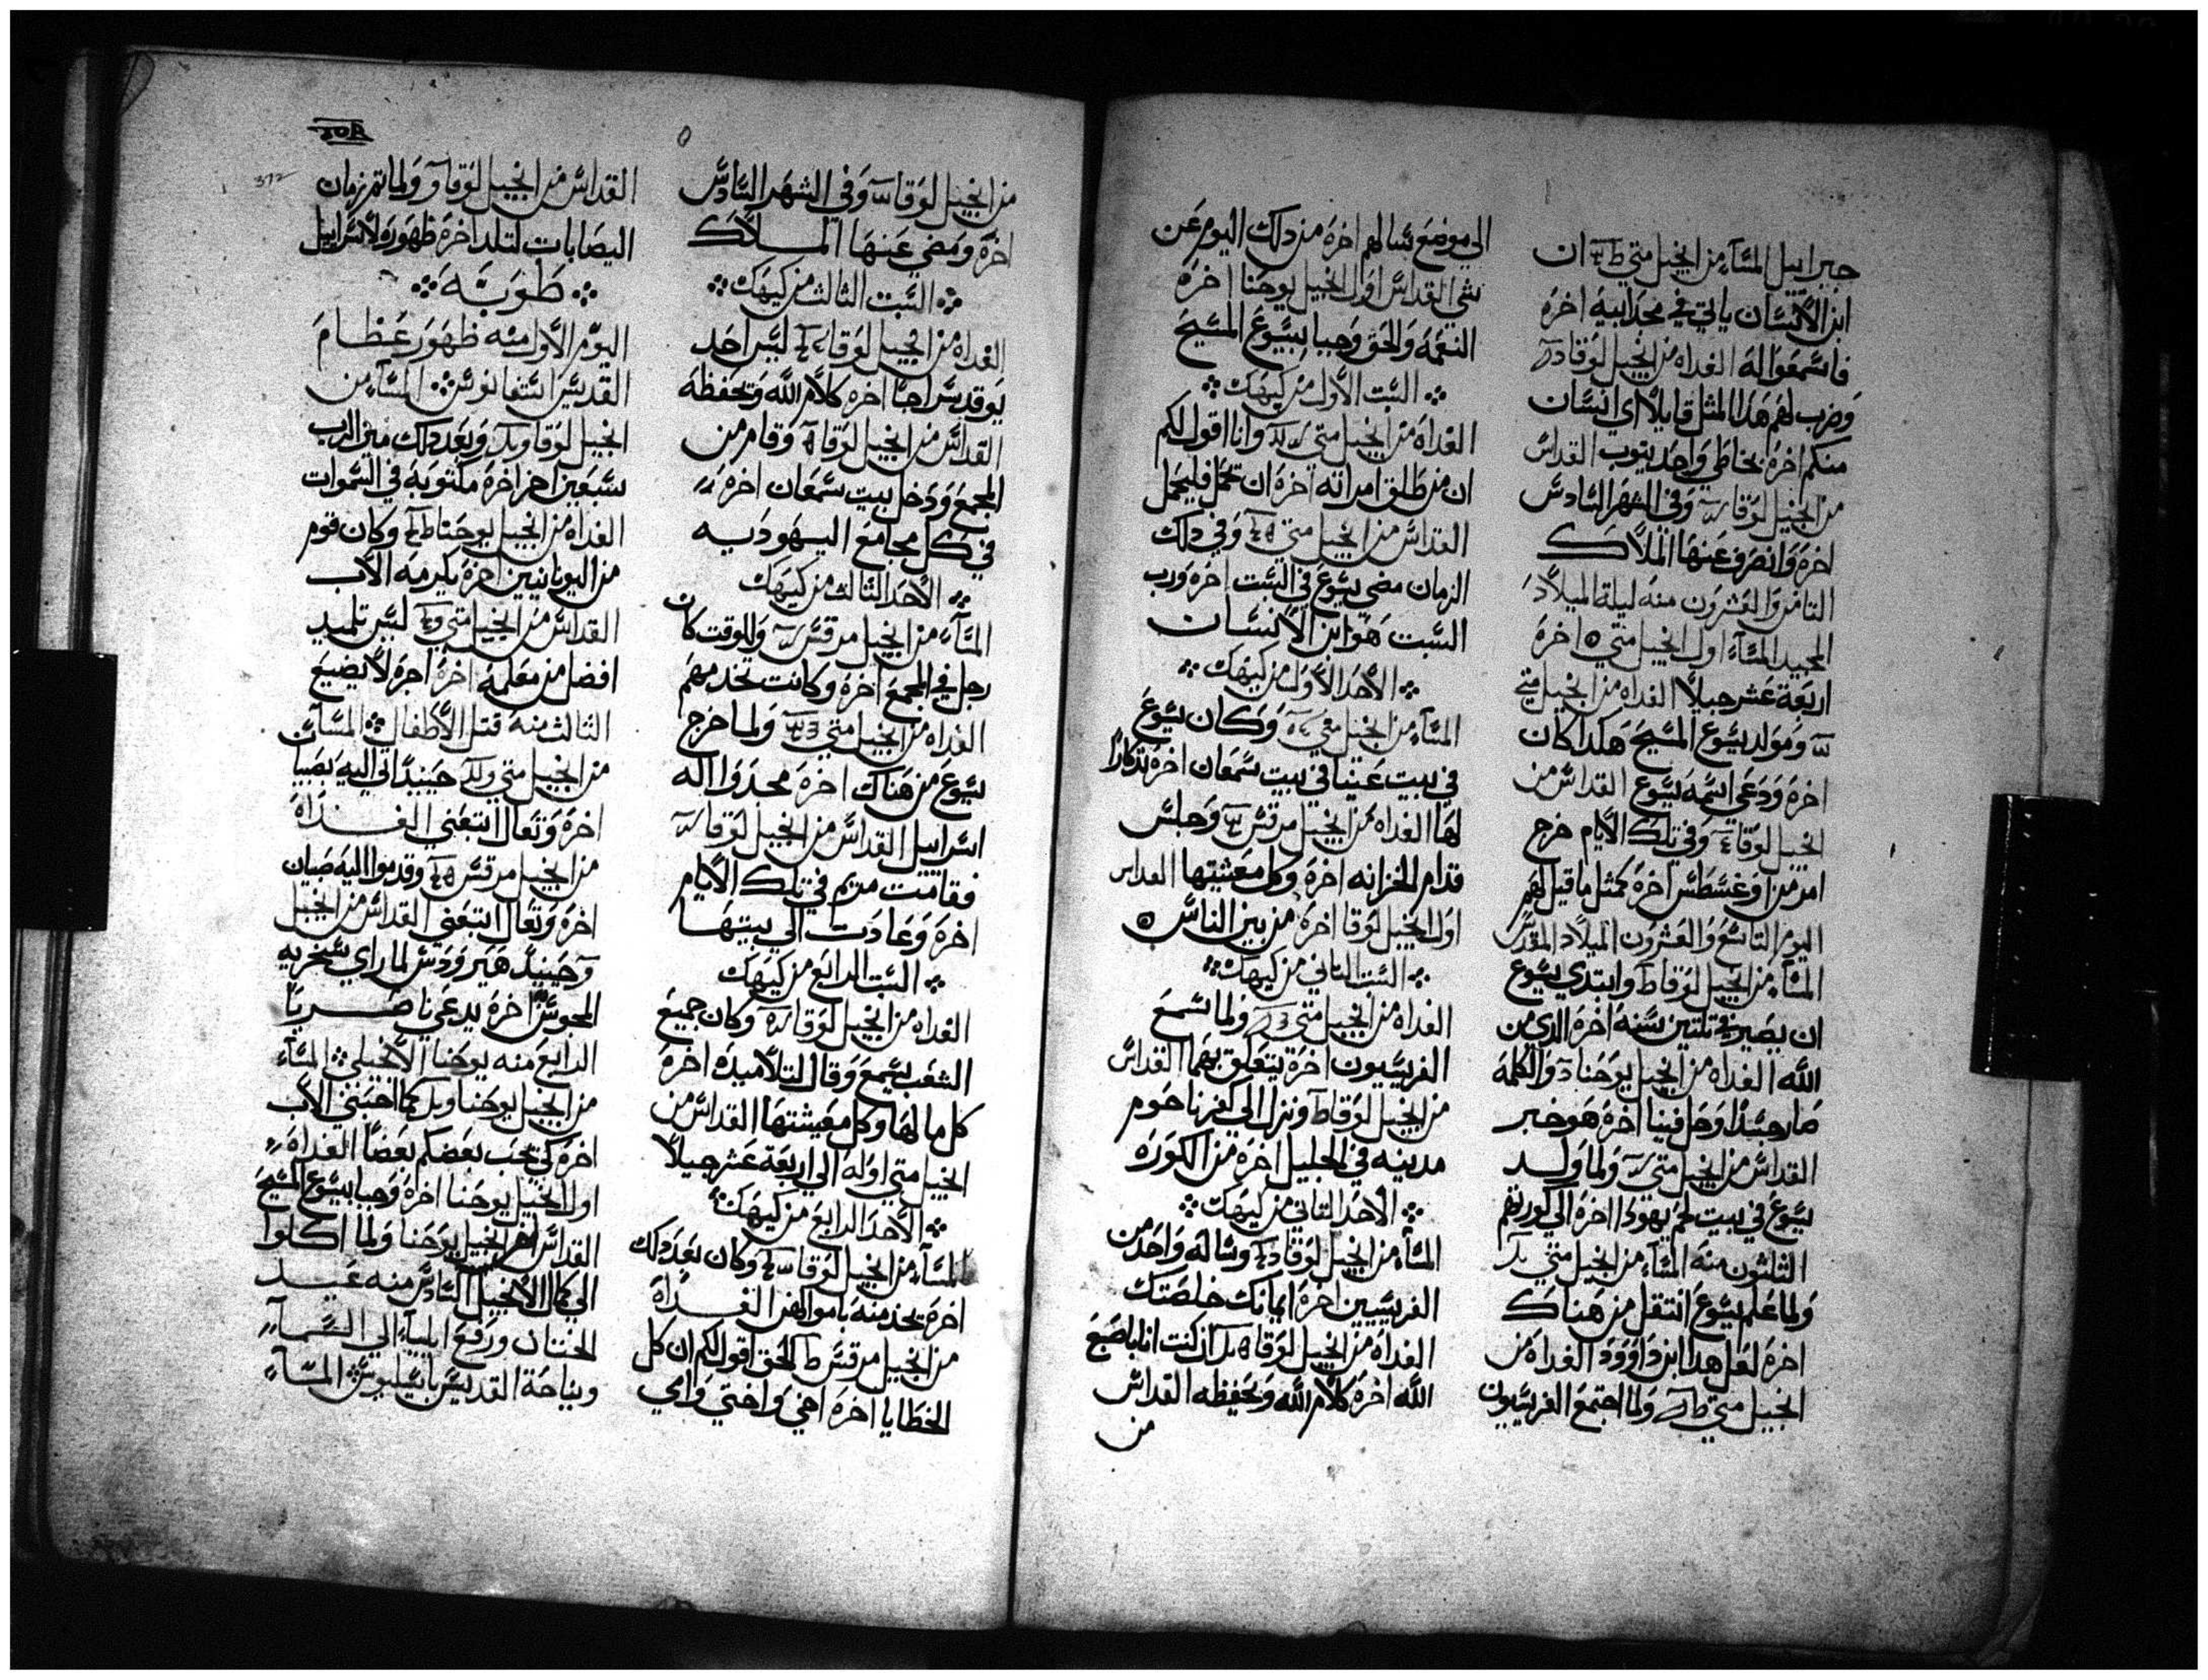 جبراييل المسآء من انجيل متي ان
ابن الانسان ياتي في مجد ابيه اخره
فاسمعوا له الغداه من انجيل لوقا
وضرب لهم هذا المثل قايلاً اي انسان
منكم اخره بخاطي واحد يتوب القداس
من انجيل لوقا وفي الشهر السادس
اخره وانصرف عنها الملاك
الثامن والعشرون منه ليلة الميلاد
المجيد المسآء اول انجيل متي اخره
اربعة عشر جيلاً الغداه من انجيل متي
ومولد يسوع المسيح هكدا كان
اخره ودعي اسمه يسوع القداس من
انجيل لوقا وفي تلك الايام خرج
امر من اوغسطس اخره كمثل ما قيل لهم
اليوم التاسع والعشرون الميلاد المقدس
المسآء من انجيل لوقا وابتدي يسوع
ان يصير في تلتين سنه اخره الدي من
الله الغداه من انجيل يوحنا والكلمة
صار جسداً وحل فينا اخره هو خبر
القداس من انجيل متي ولما ولد
يسوع في بيت لحم يهودا اخره الي كورتهم
الثلثون منه المسآء من انجيل متي
ولما علم يسوع انتقل من هناك
اخره لعل هدا ابن داوود الغداه من
انجيل متي ولما اجتمع الفريسيون
الي موضع اخره من دلك اليوم عن
شي القداس اول انجيل يوحنا اخره
النعمه والحق وجبا بيسوع المسيح
السبت الاول من كيهك
الغداه من انجيل متي وانا اقول لكم
ان من طلق امراته اخره ان تحمل فليحمل
القداس من انجيل متي وفي دلك
الزمان مضي يسوع في السبت اخره ورب
السبت هو ابن الانسان
الاحد الاول من كيهك
المسآء من انجيل متي وكان يسوع
في بيت عنيا في بيت سمعان اخره تدكاراً
لها الغداه من انجيل مرقس وجلس
قدام الخزانه اخره وكل معشيتها القداس
اول انجيل لوقا اخره من بين الناس
السبت الثاني من كيهك
الغداه من انجيل متي ولما سمع
الفريسيون اخره يتعلق بهما القداس
من انجيل لوقا ونزل الي كفرناحوم
مدينه في الجليل اخره من الكوره
الاحد الثاني من كيهك
المسآء من انجيل لوقا وساله واحد من
الفريسيين اخره ايمانك خلصتك
الغداه من انجيل لوقا ان كنت انا باصبع
الله اخره كلام الله وتحفيظه القداس
من
من انجيل لوقا وفي الشهر السادس
اخره ومضي عنها الملاك
السبت الثالث من كيهك
الغداه من انجيل لوقا ليس احد
يوقد سراجاً اخره كلام الله وتحفظه
القداس من انجيل لوقا وقام من
المجمع ودخل بيت سمعان اخره
في كل مجامع اليهوديه
الاحد الثالث من كيهك
المسآء من انجيل مرقس وللوقت كان
رجل في المجمع اخره وكانت تخدمهم
الغداه من انجيل متي ولما خرج
يسوع من هناك اخره مجدوا اله
اسراييل القداس من انجيل لوقا
فقامت مريم في تلك الايام
اخره وعادت الي بيتها
السبت الرابع من كيهك
الغداه من انجيل لوقا وكان جميع
الشعب يسمع وقال لتلاميده اخره
كل ما لها وكل معيشتها القداس من
انجيل متي اوله الي اربعة عشر جيلاً
الاحد الرابع من كيهك
المسآء من انجيل لوقا وكان بعد دلك
اخره يخدمنه باموالهن الغداه
من انجيل مرقس الحق اقول لكم ان كل
الخطايا اخره اخي واختي وامي
372
القداس من انجيل لوقا ولما تم زمان
اليصابات لتلد اخره ظهوره لاسراييل
طوبة
اليوم الاول منه ظهور عظام
القديس استفانوس المسآء من
انجيل لوقا وبعد دلك ميز الرب
سبعين اخر اخره مكتوبة في السموات
الغداه من انجيل يوحنا وكان قوم
من اليونانيين اخره يكرمه الاب
القداس من انجيل متي ليس تلميد
افضل من معلمه اخره اجره لا يضيع
الثالث منه قتل الاطفال المسآء
من انجيل متي حينيداً اتي اليه بصبيا
اخره وتعال اتبعني الغداه
من انجيل مرقس وقدموا اليه صبيان
اخره وتعال اتبعني القداس من انجيل
حينيد هيرودس لما راي سخر به
المجوس اخره يدعي ناصريا
الرابع منه يوحنا الانجيلي المسآء
من انجيل يوحنا كما احبني الاب
اخره كي يحب بعضكم بعضاً الغداه
اول انجيل يوحنا اخره وجبا بيسوع المسيح
القداس اخر انجيل يوحنا ولما اكلوا
الي كمال الانجيل السادس منه عيد
الختان ورفع ايلياء الي السمآء
ونياحة القديس باسيليوس المسآء